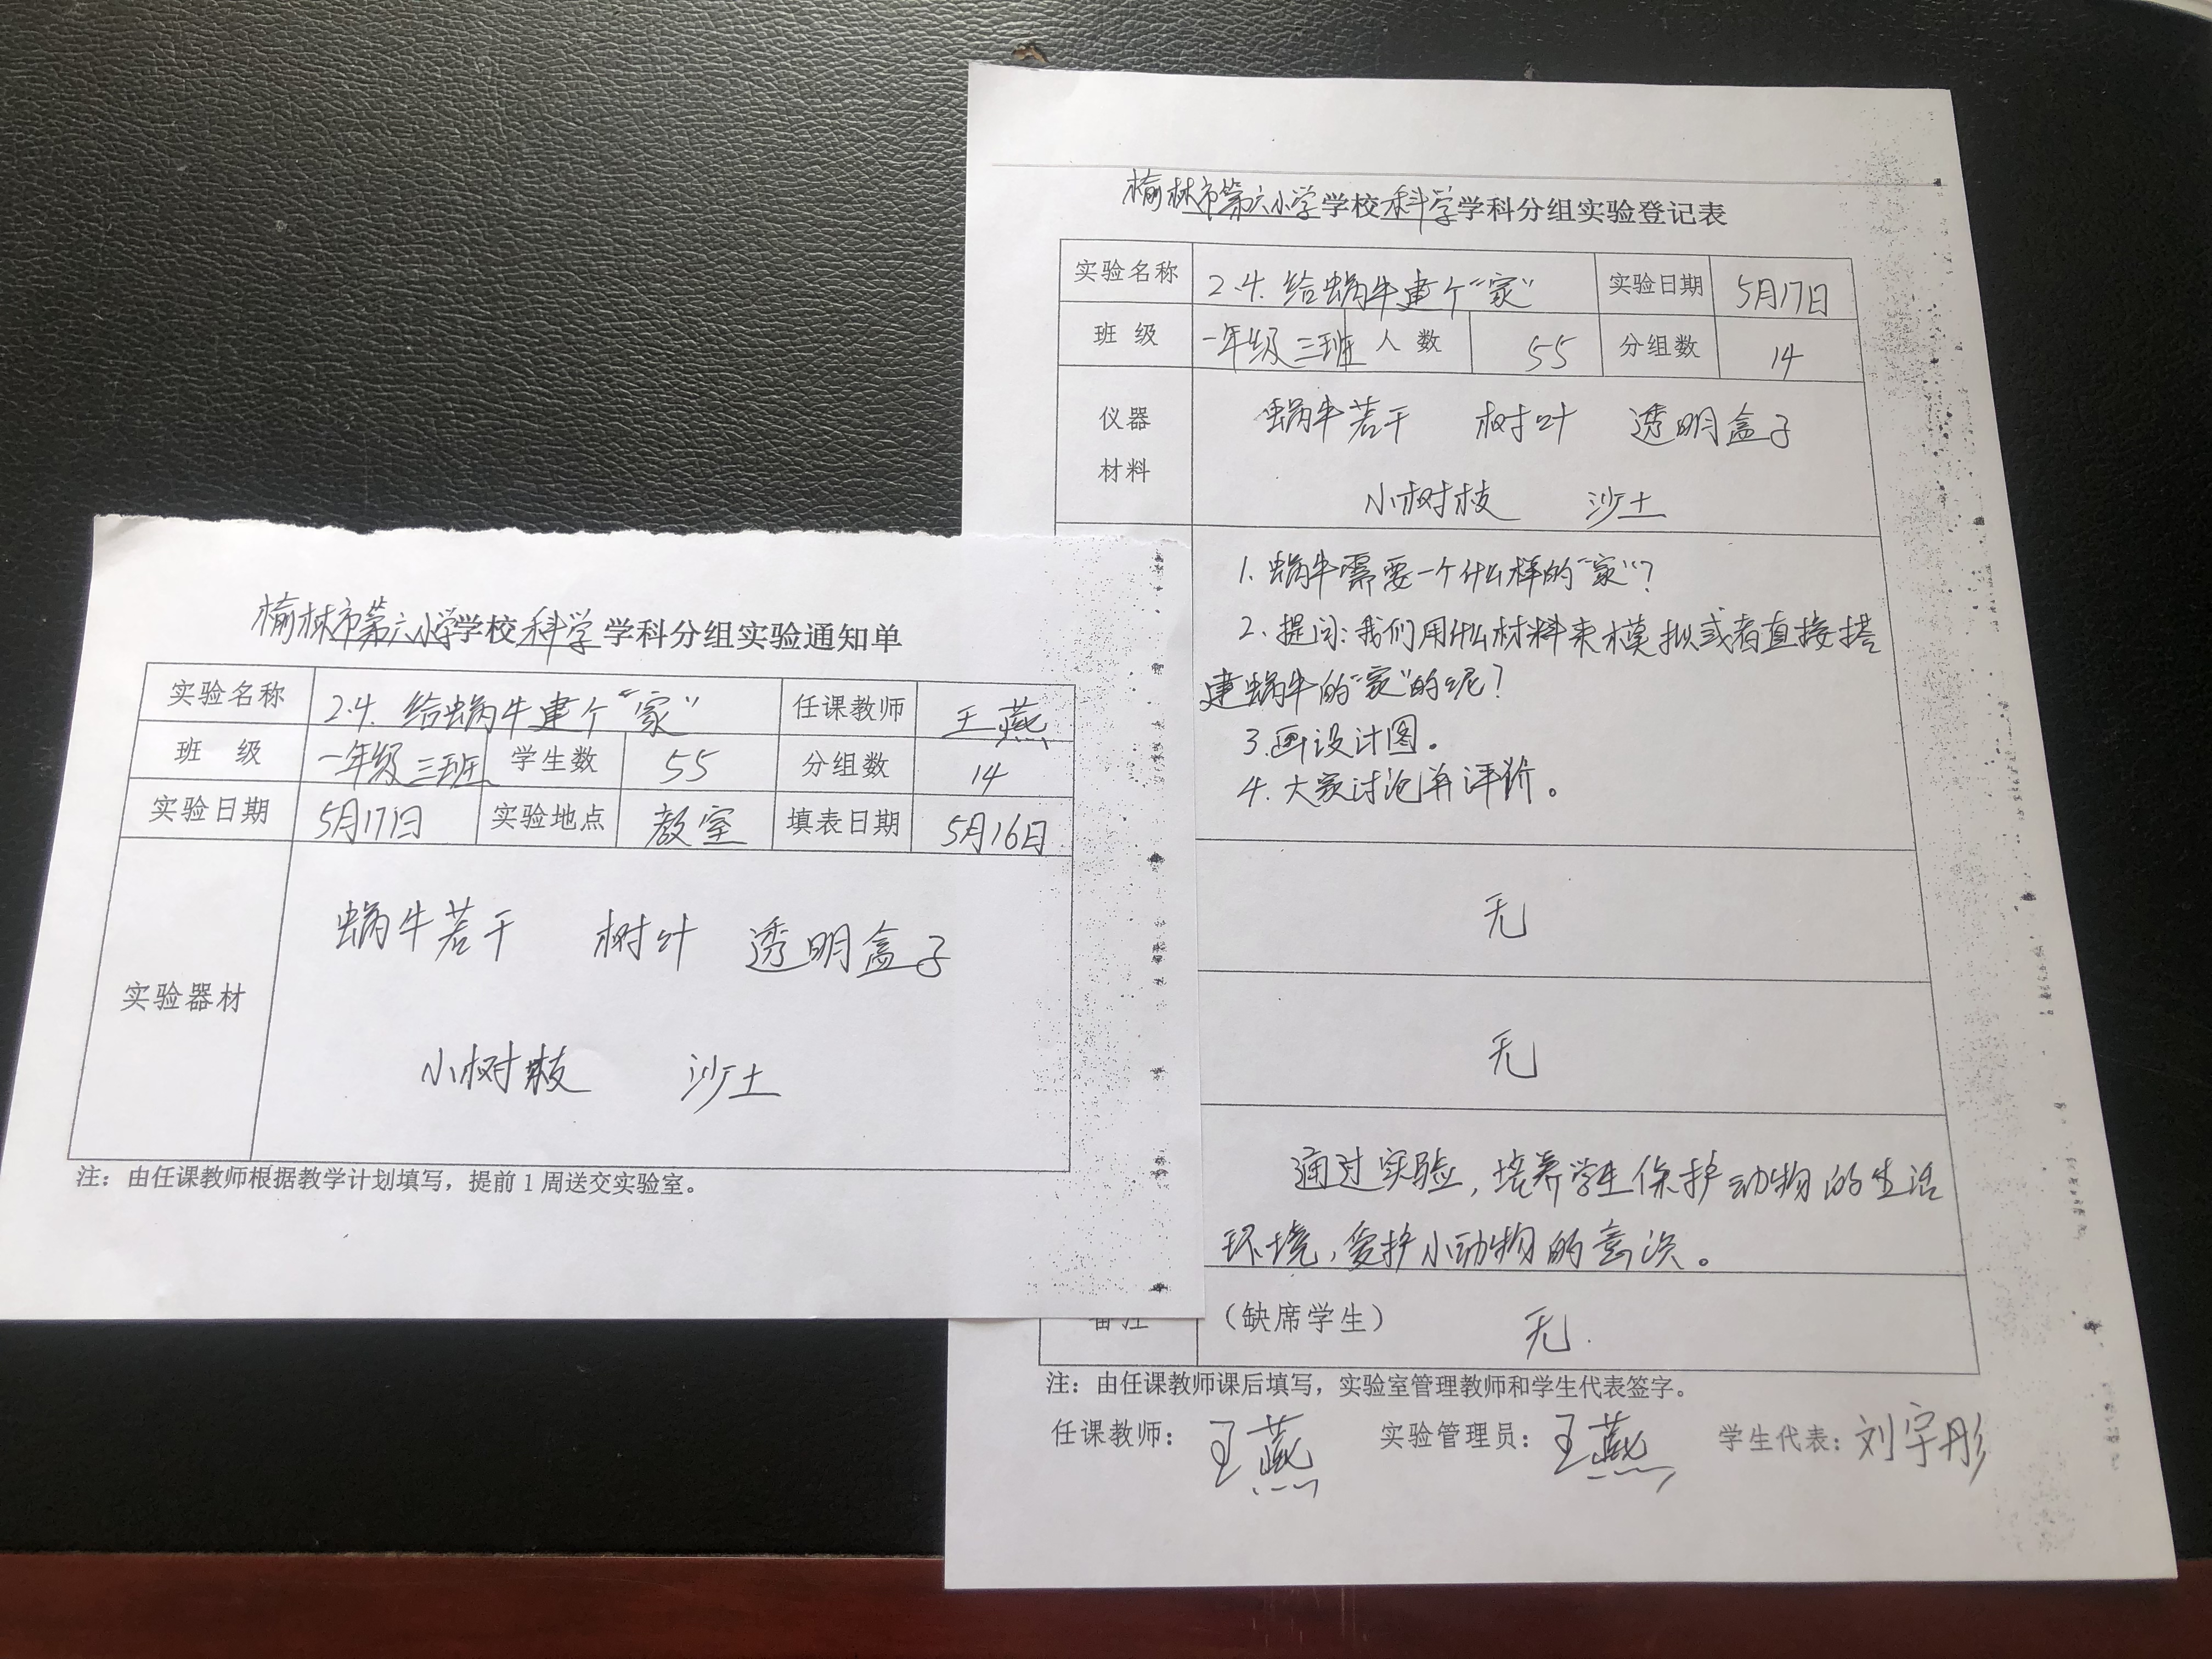 榆林市第六小学学校科学学科分组实验通知单
实验名称 2.4.给蜗牛建个“家” 任课教师 王燕
班 级 一年级三班 学生数 55 分组数 14
实验日期 5月17日 实验地点 教室 填表日期 5月16日
蜗牛若干 树叶 透明盒子
实验器材
小树枝 沙土
注：由任课教师根据教学计划填写，提前1周送交实验室。
榆林市第六小学学校科学学科分组实验登记表
实验名称 2.4.给蜗牛建个“家” 实验日期 5月17日
班 级 一年级三班 人 数 55 分组数 14
仪器 蜗牛若干 树叶 透明盒子
材料
小树枝 沙土
1.蜗牛需要一个什么样的“家”？
2.提问：我们用什么材料来模拟或者直接搭
建蜗牛的“家”的呢？
3.画设计图。
4.大家讨论并评价。
无
无
通过实验，培养学生保护动物的生活
环境，爱护小动物的意识。
备注 （缺席学生） 无.
注：由任课教师课后填写，实验室管理教师和学生代表签字。
任课教师：王燕 实验管理员：王燕 学生代表：刘宇彤